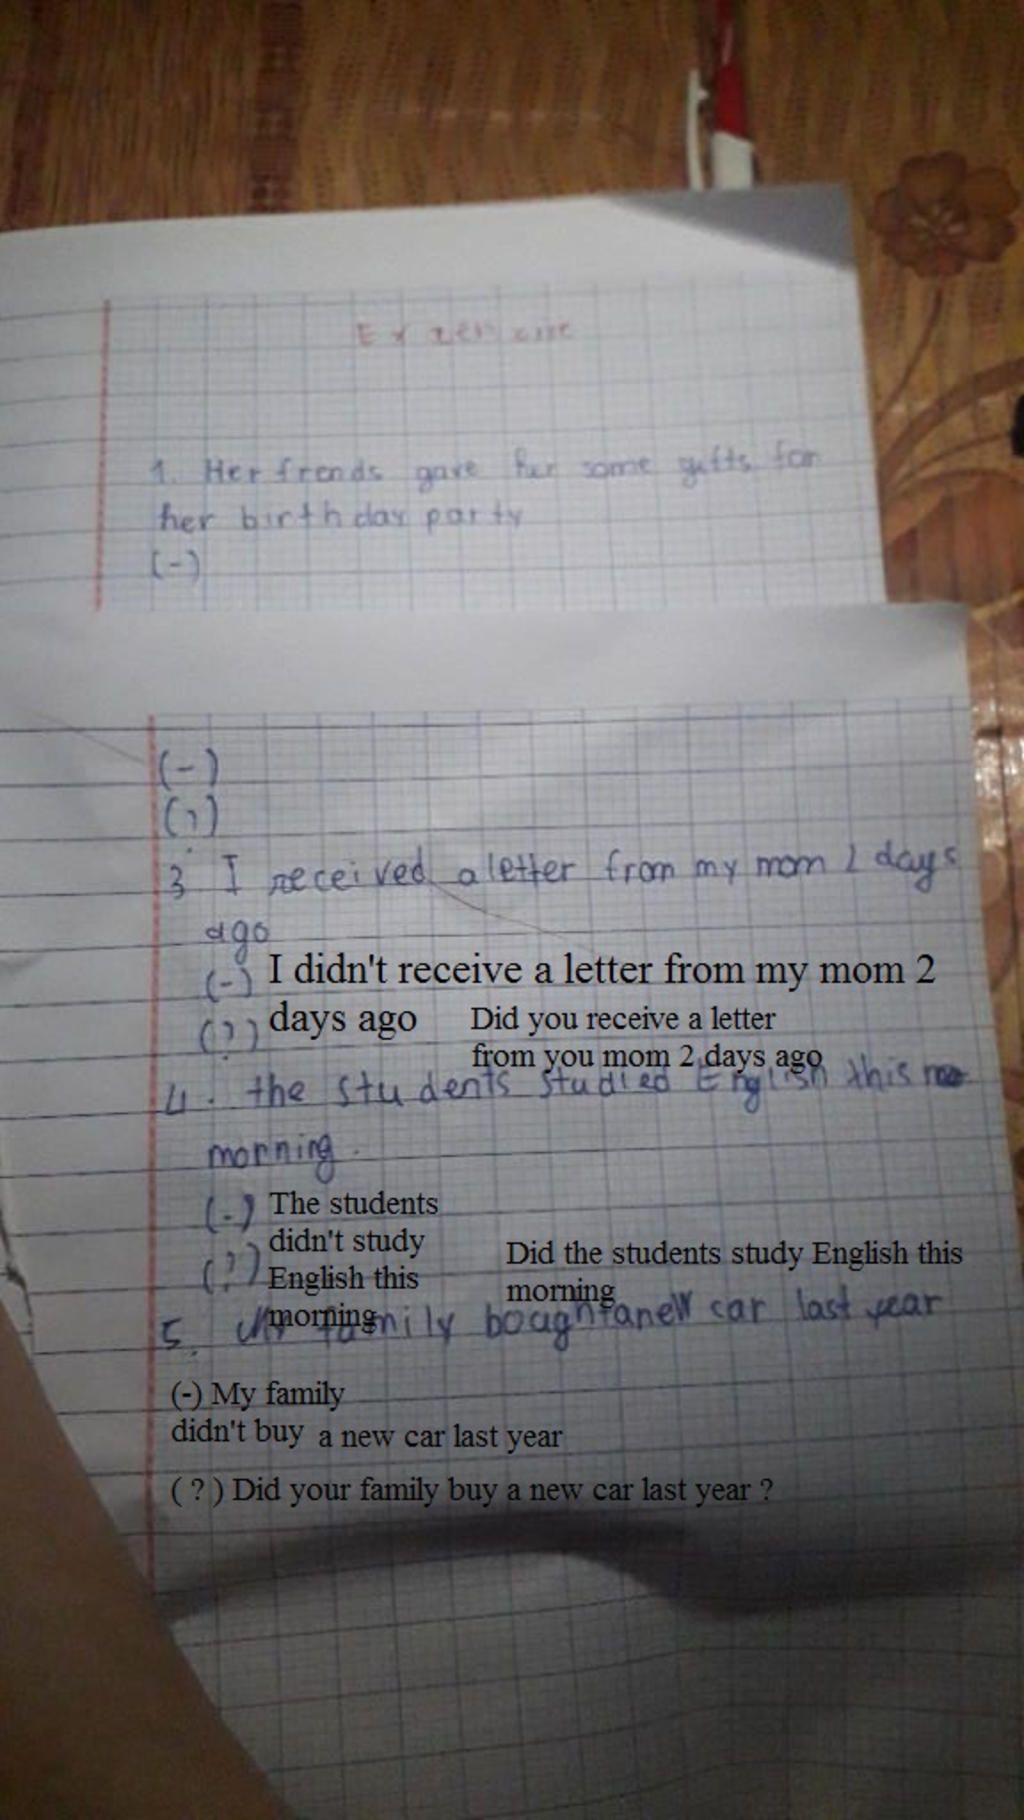 Exercise
1. Her frends gave her some gifts for
her birthday party
(-)
(-)
(?)
3 I received a letter from my mom 2 days
ago
(-) I didn't receive a letter from my mom 2
days ago
(?) Did you receive a letter
from you mom 2 days ago
4. the students studied English this
morning.
(-) The students
didn't study
English this
morning
(?) Did the students study English this
morning
5. My family bought a new car last year
(-) My family
didn't buy a new car last year
( ? ) Did your family buy a new car last year ?